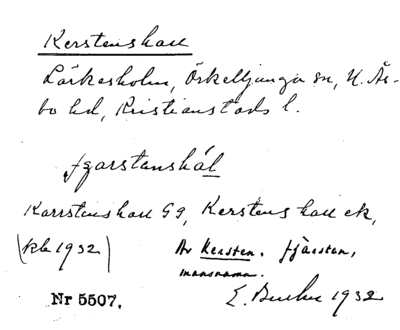 Kerstenshall
Lärkesholm, Örkelljunga sn, N. Ås-
bo hd, Kristianstads l.
Karrstenshall GG, Kerstens hall ek,
(kb 1932)
Av Kersten. fjärsten,
mansnamn.
E. Bucht 1932
Nr 5507.